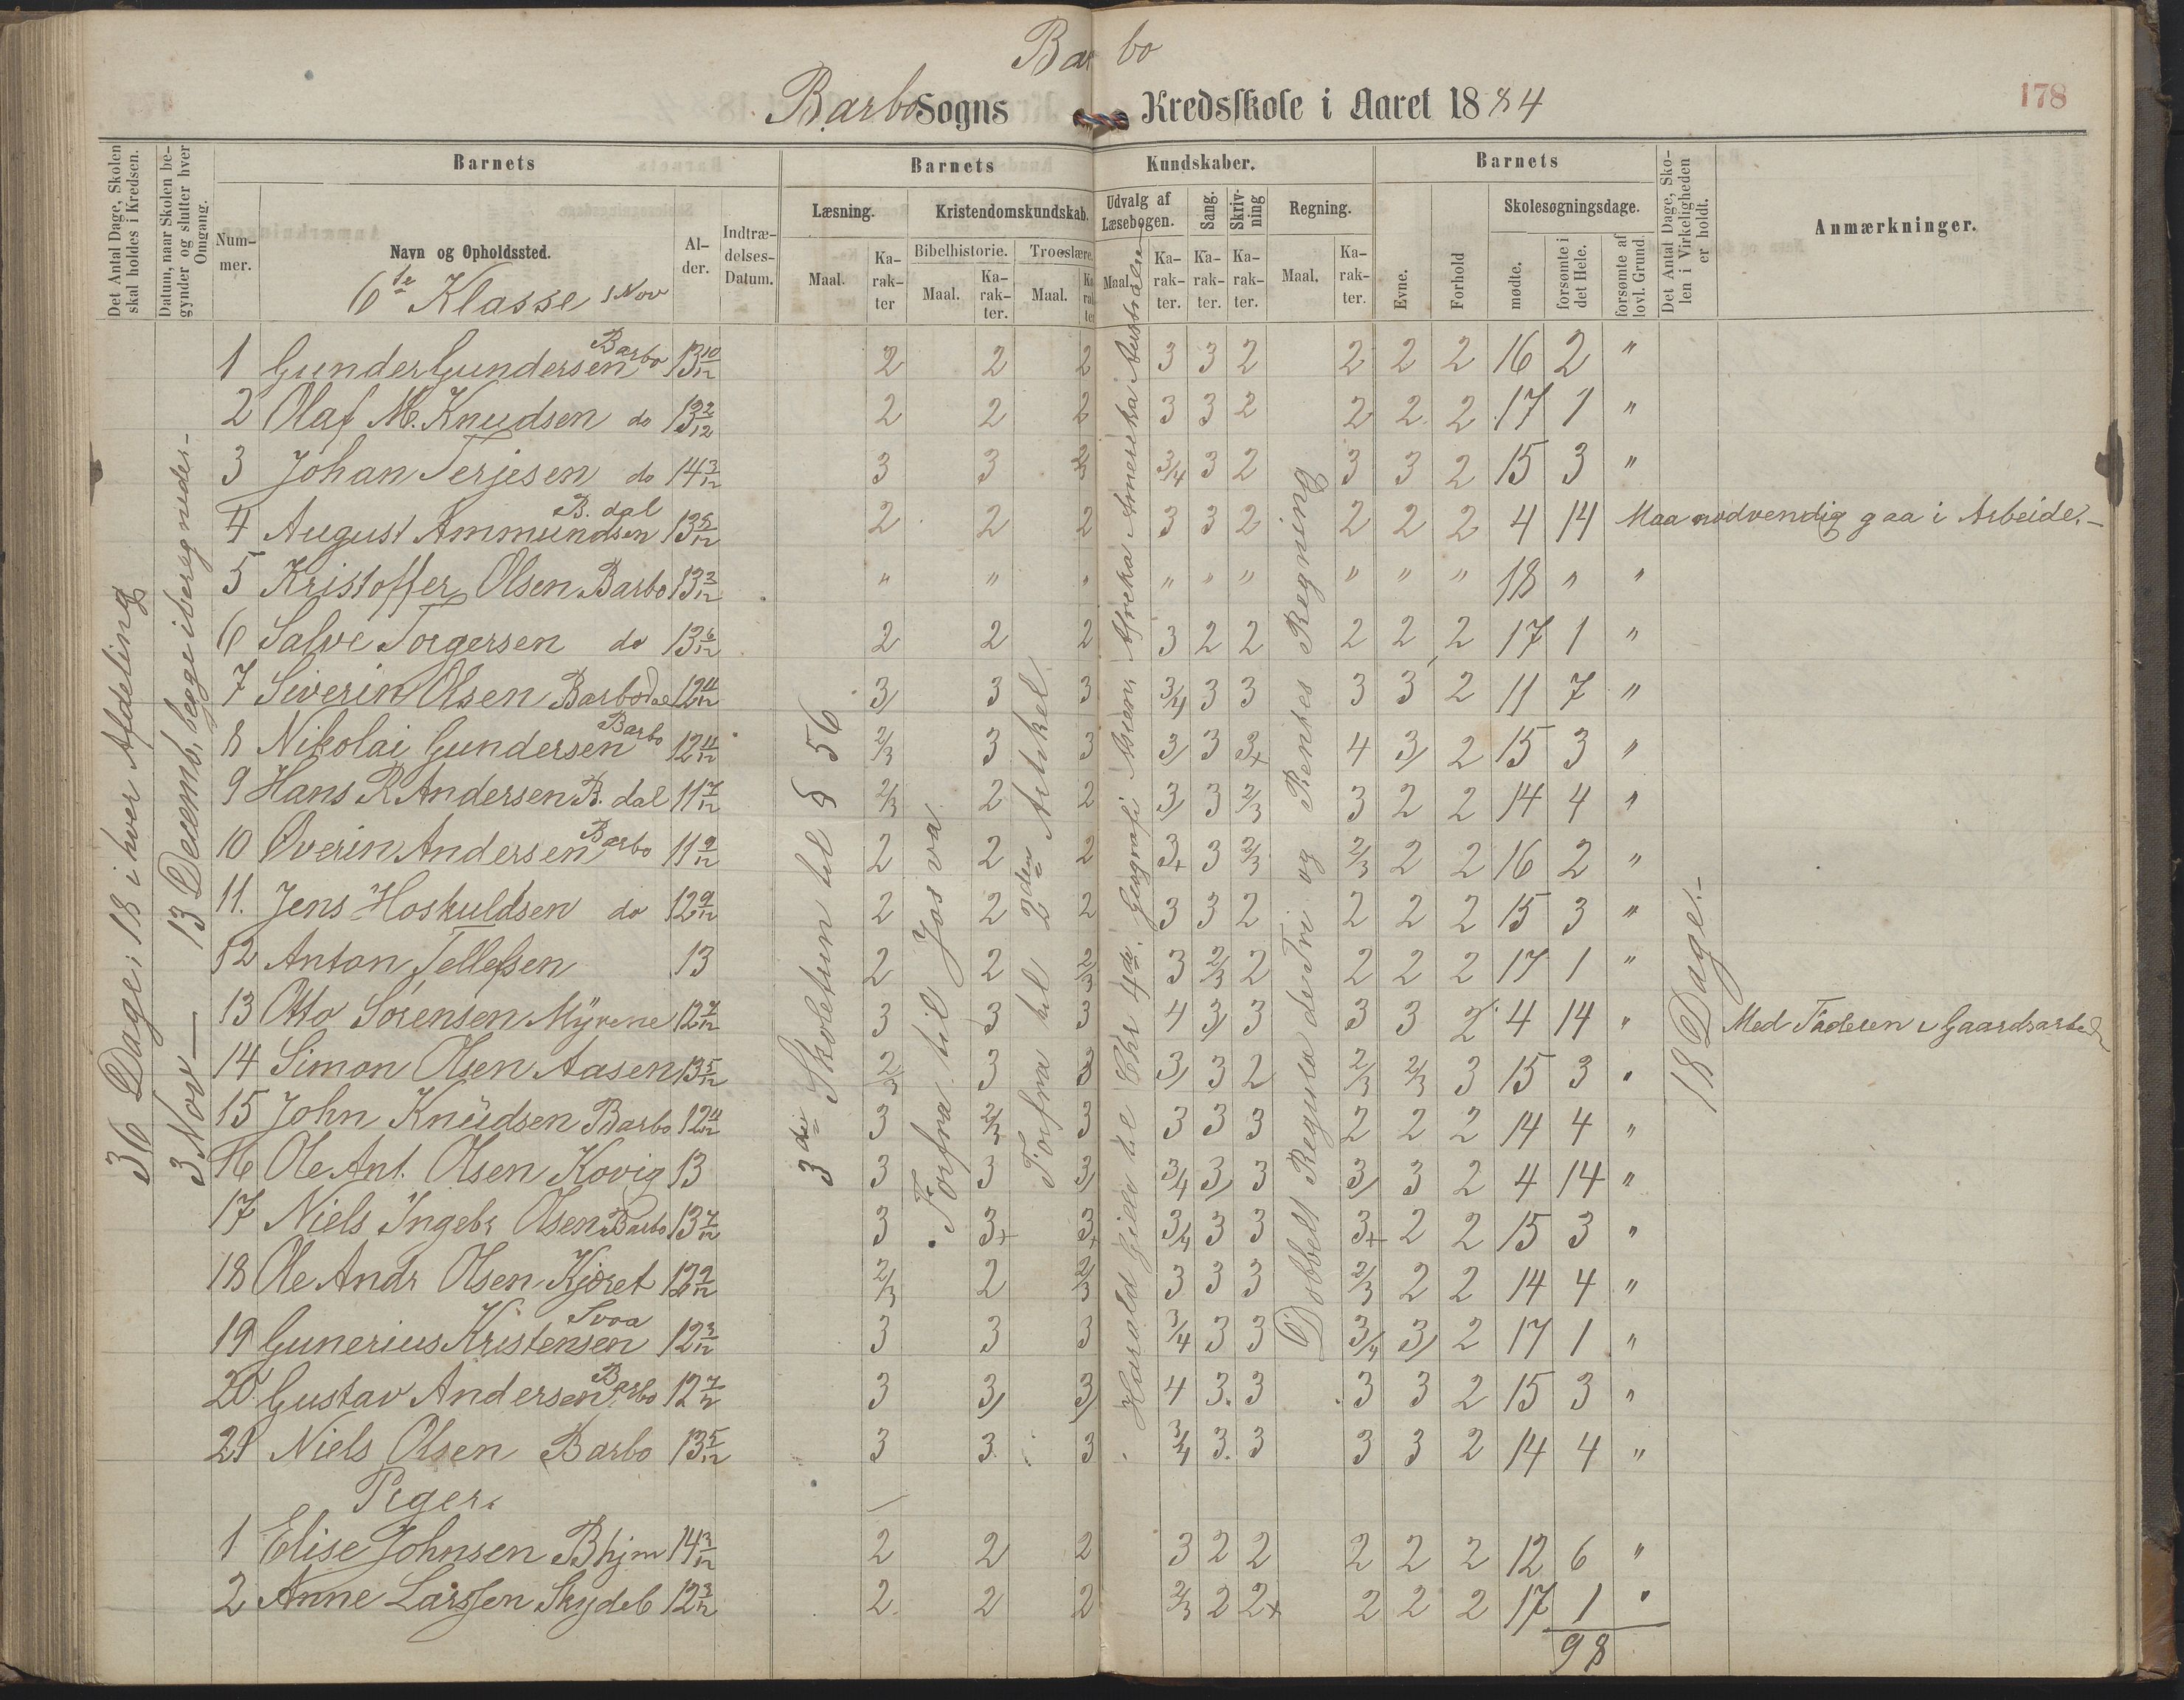 Barbo
Barbo Sogns Kredsskole i Aaret 1884
178
Det Antal Dage, Skolen skal holdes i Kredsen.
Datum, naar Skolen begynder og slutter hver Omgang.
Barnets
Barnets
Kundskaber.
Barnets
Det Antal Dage, Skolen i Virkeligheden er holdt.
Anmærkninger.
Nummer.
Navn og Opholdssted.
Alder.
Indtrædelses-Datum.
Læsning.
Kristendomskundskab.
Udvalg af Læsebogen.
Sang.
Skrivning
Regning.
Evne.
Forhold
Skolesøgningsdage.
Bibelhistorie.
Troeslære.
Maal.
Karakter
Maal.
Karakter.
Maal.
Karakter
Maal.
Karakter.
Karakter.
Karakter.
Maal.
Karakter.
mødte.
forsømte i det Hele.
forsømte af lovl. Grund.
6te Klasse 1 Nov
36 Dage, 18 i hver Afdeling
3 Nov — 13 Decemb, begge iberegnudes-
3die Skoletun til § 56
Forfra til Josva
Forfra til 2den Artikel
Harald Gille til Chr 4de. Geografi Asien, Afreka Amereka Australien
Dobbelt Regula de Tri og Rentes Regning
18 Dage.-
1 Gunder Gundersen Barbo 13 10/12 2 2 2 3 3 2 2 2 2 16 2 "
2 Olaf M. Knudsen do 13 2/12 2 2 2 3 3 2 2 2 2 17 1 "
3 Johan Terjesen do 14 3/12 3 3 3 3/4 3 2 3 3 2 15 3 "
4 August Ammundsen B. dal 13 5/12 2 2 2 3 3 2 2 2 2 4 14 Maa nødvendig gaa i Arbeide.-
5 Kristoffer Olsen Barbo 13 3/12 " " " " " " " " " 18 " "
6 Salve Torgersen do 13 6/12 2 2 2 3 2 2 2 2 2 17 1 "
7 Siverin Olsen Barbodal 12 11/12 3 3 3 3/4 3 3 3 3 2 11 7 "
8 Nikolai Gundersen Barbo 12 11/12 2/3 3 3 3/ 3 3+ 4 3/ 2 15 3 "
9 Hans R Andersen B. dal 11 7/12 2/3 2 2 3/ 3 2/3 3 2 2 14 4 "
10 Øverin Andersen Barbo 11 9/12 2 2 2 3+ 3 2/3 2/3 2 2 16 2 "
11. Jens Hoskuldsen do 12 9/12 2 2 2 3 3 2 2 2 2 15 3 "
12 Anton Tellefsen 13 2 2 2/3 3 2/3 2 2 2 2 17 1 "
13 Otto Sørensen Myrene 12 7/12 3 3 3 4 3/ 3 3 3 2 4 14 " Med Faderen i Gaardsarbed
14 Simon Olsen Aasen 13 5/12 2/3 3 3 3/ 3 2 2/3 2/3 3 15 3 "
15 John Knudsen Barbo 12 4/12 3 2/3 3 3 3 3 2 2 2 14 4 "
16 Ole Ant. Olsen Kovig 13 3 3 3/ 3/4 3/ 3 3/ 3 2 4 14 "
17 Niels Ingebr Olsen Barbo 13 7/12 3 3+ 3+ 3/4 3 3 3+ 2 2 15 3 "
18 Ole Andr Olsen Kjøret 12 9/12 2/3 2 2/3 3 3 3 2/3 2 2 14 4 "
19 Gunerius Kristensen Svoa 12 3/12 3 3 3 3/4 3 3 3/4 3/ 2 17 1 "
20 Gustav Andersen Barbo 12 7/12 3 3/ 3/ 4 3. 3 3 3 2 15 3 "
21 Niels Olsen Barbo 13 5/12 3 3 3 3/4 3. 3 3 3 2 14 4 "
Piger.
1 Elise Johnsen Bhjm 14 3/12 2 2 2 3 2 2 2 2 2 12 6 "
2 Anne Larssen Skydeb 12 3/12 2 2 2 2/3 2 2+ 2 2 2 17 1 "
98